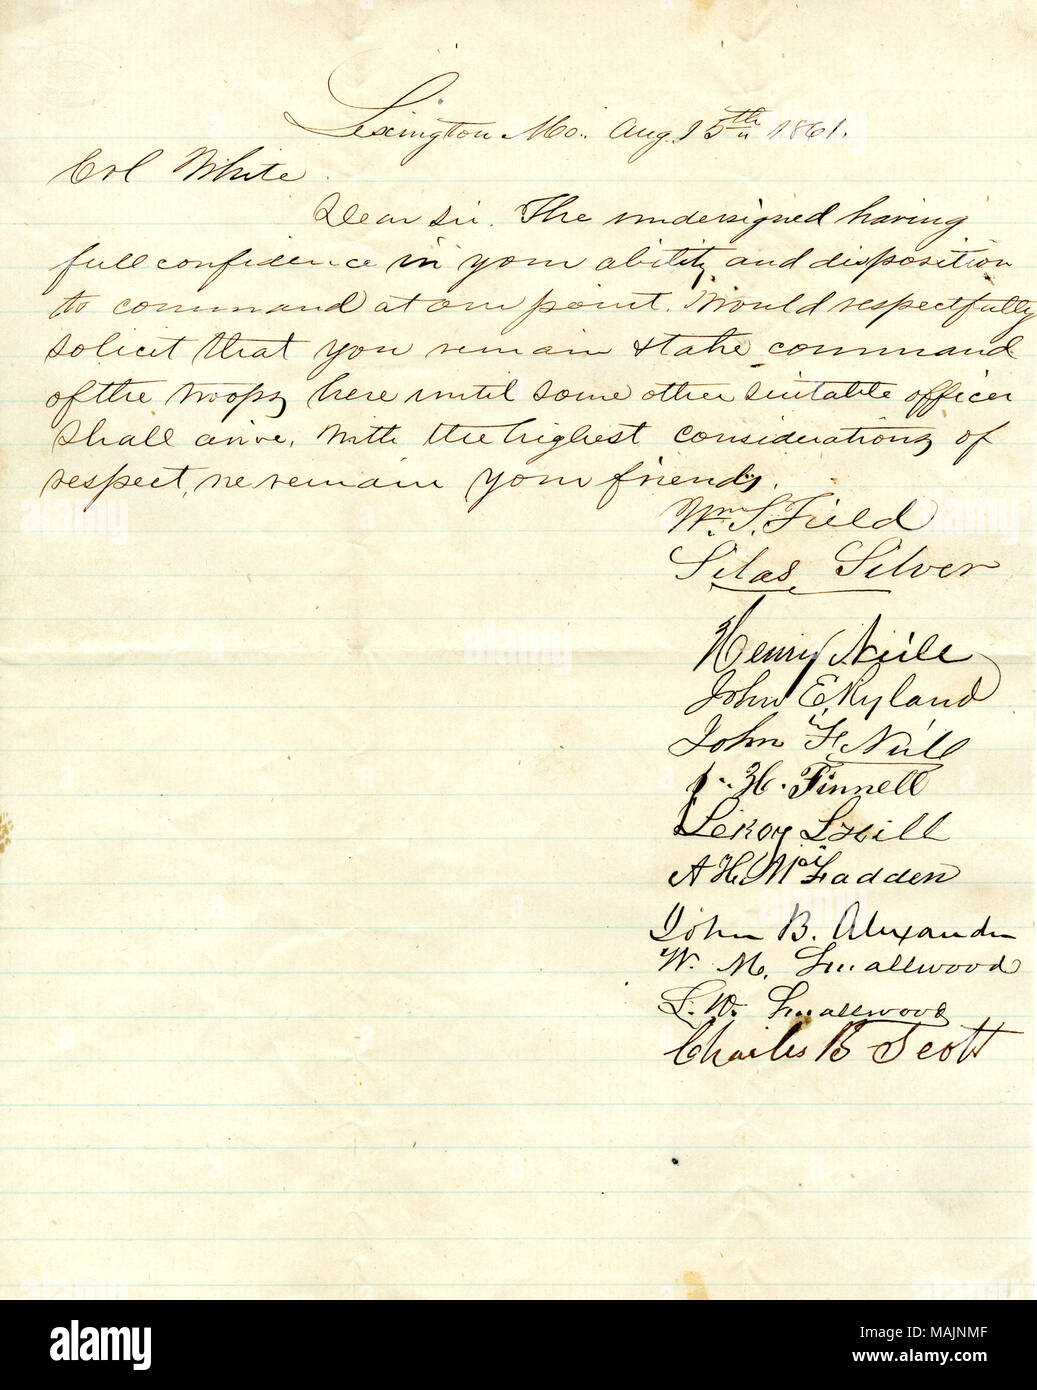 Lexington Mo. Aug 15th 1861.
Col White
Dear Sir. The undersigned having
full confidence in your ability and disposition
to command at our point. Would respectfully
solicit that you remain & take command
of the troops here until some other suitable officer
shall arive. With the highest considerations of
respect, we remain your friends.
Wm. S. Field
Silas Silver
Henry Neile
John E. Ryland
John F. Neill
H. Pinnell
Leroy
A H. McFadden
John B. Alexander
W. M. Smallwood
L. W. Smallwood
Charles B Scott
alamy
Image ID: MAJNMF
www.alamy.com